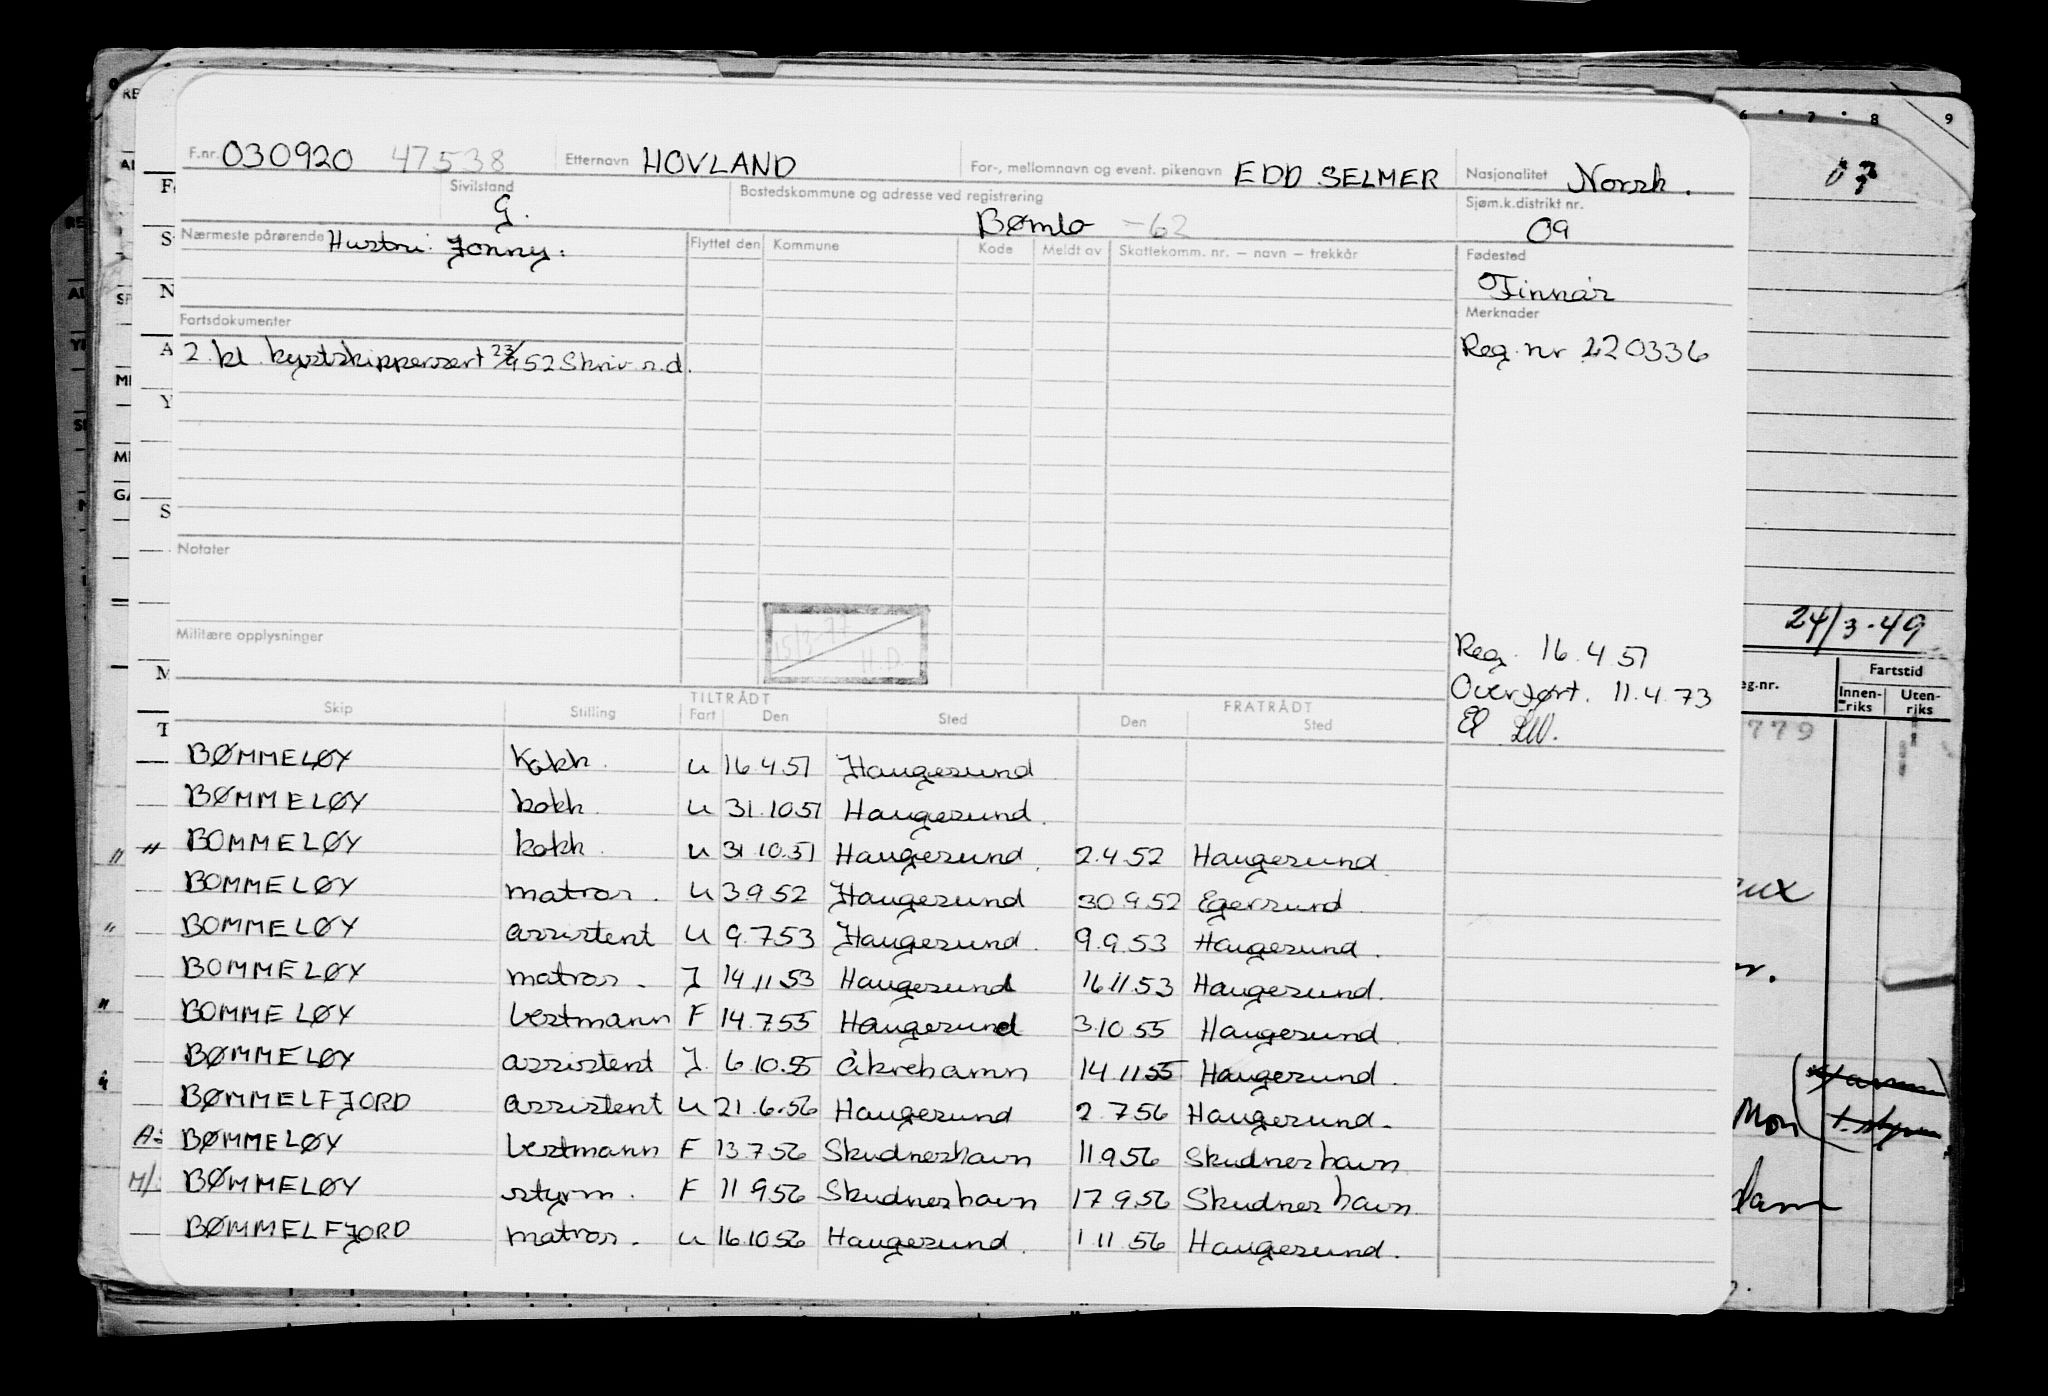 F.nr. 030920 47538 Etternavn HOVLAND For-, mellomnavn og event. pikenavn EDD SELMER Nasjonalitet Norsk.
Sivilstand G. Bostedskommune og adresse ved registrering Bømlo -62 Sjøm.k.distrikt nr. 09
Nærmeste pårørende Hustru: Jonny: Flyttet den Kommune Kode Meldt av Skattekomm. nr. — navn — trekkår Fødested
Finnås
Fartsdokumenter Merknader
2. kl. kystskippersert 23/9 52 Skriv s.d. Reg. nr 220336
Notater
Militære opplysninger
15/3-77 H.D.
Reg. 16.4.51
Overført. 11.4.73
TILTRÅDT FRATRÅDT
Skip Stilling Fart Den Sted Den Sted
BØMMELØY Kokk. U 16.4.51 Haugesund
BØMMELØY kokk. U 31.10.51 Haugesund.
BOMMELØY kokk. U 31.10.51 Haugesund. 2.4.52 Haugesund.
BOMMELØY matros. U 3.9.52 Haugesund 30.9.52 Egersund.
BOMMELØY assistent U 9.7.53 Haugesund. 9.9.53 Haugesund.
BOMMELØY matros. J 14.11.53 Haugesund 16.11.53 Haugesund.
BOMMELØY bestmann F 14.7.55 Haugesund 3.10.55 Haugesund.
BØMMELØY assistent J. 6.10.55 Åkrehamn 14.11.55 Haugesund.
BØMMELFJORD assistent U 21.6.56 Haugesund 2.7.56 Haugesund.
BØMMELØY bestmann F 13.7.56 Skudneshavn 11.9.56 Skudneshavn
BØMMELØY styrm. F 11.9.56 Skudneshavn 17.9.56 Skudneshavn.
BØMMELFJORD matros. U 16.10.56 Haugesund. 1.11.56 Haugesund.
6 7 8 9
24/3-49
Fartstid
eg.nr. Innen-riks Uten-riks
779